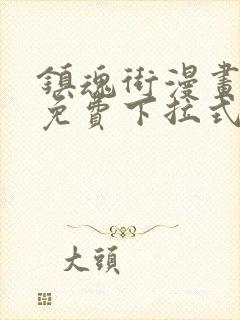 鎮魂街漫畫
免費下拉式
大頭